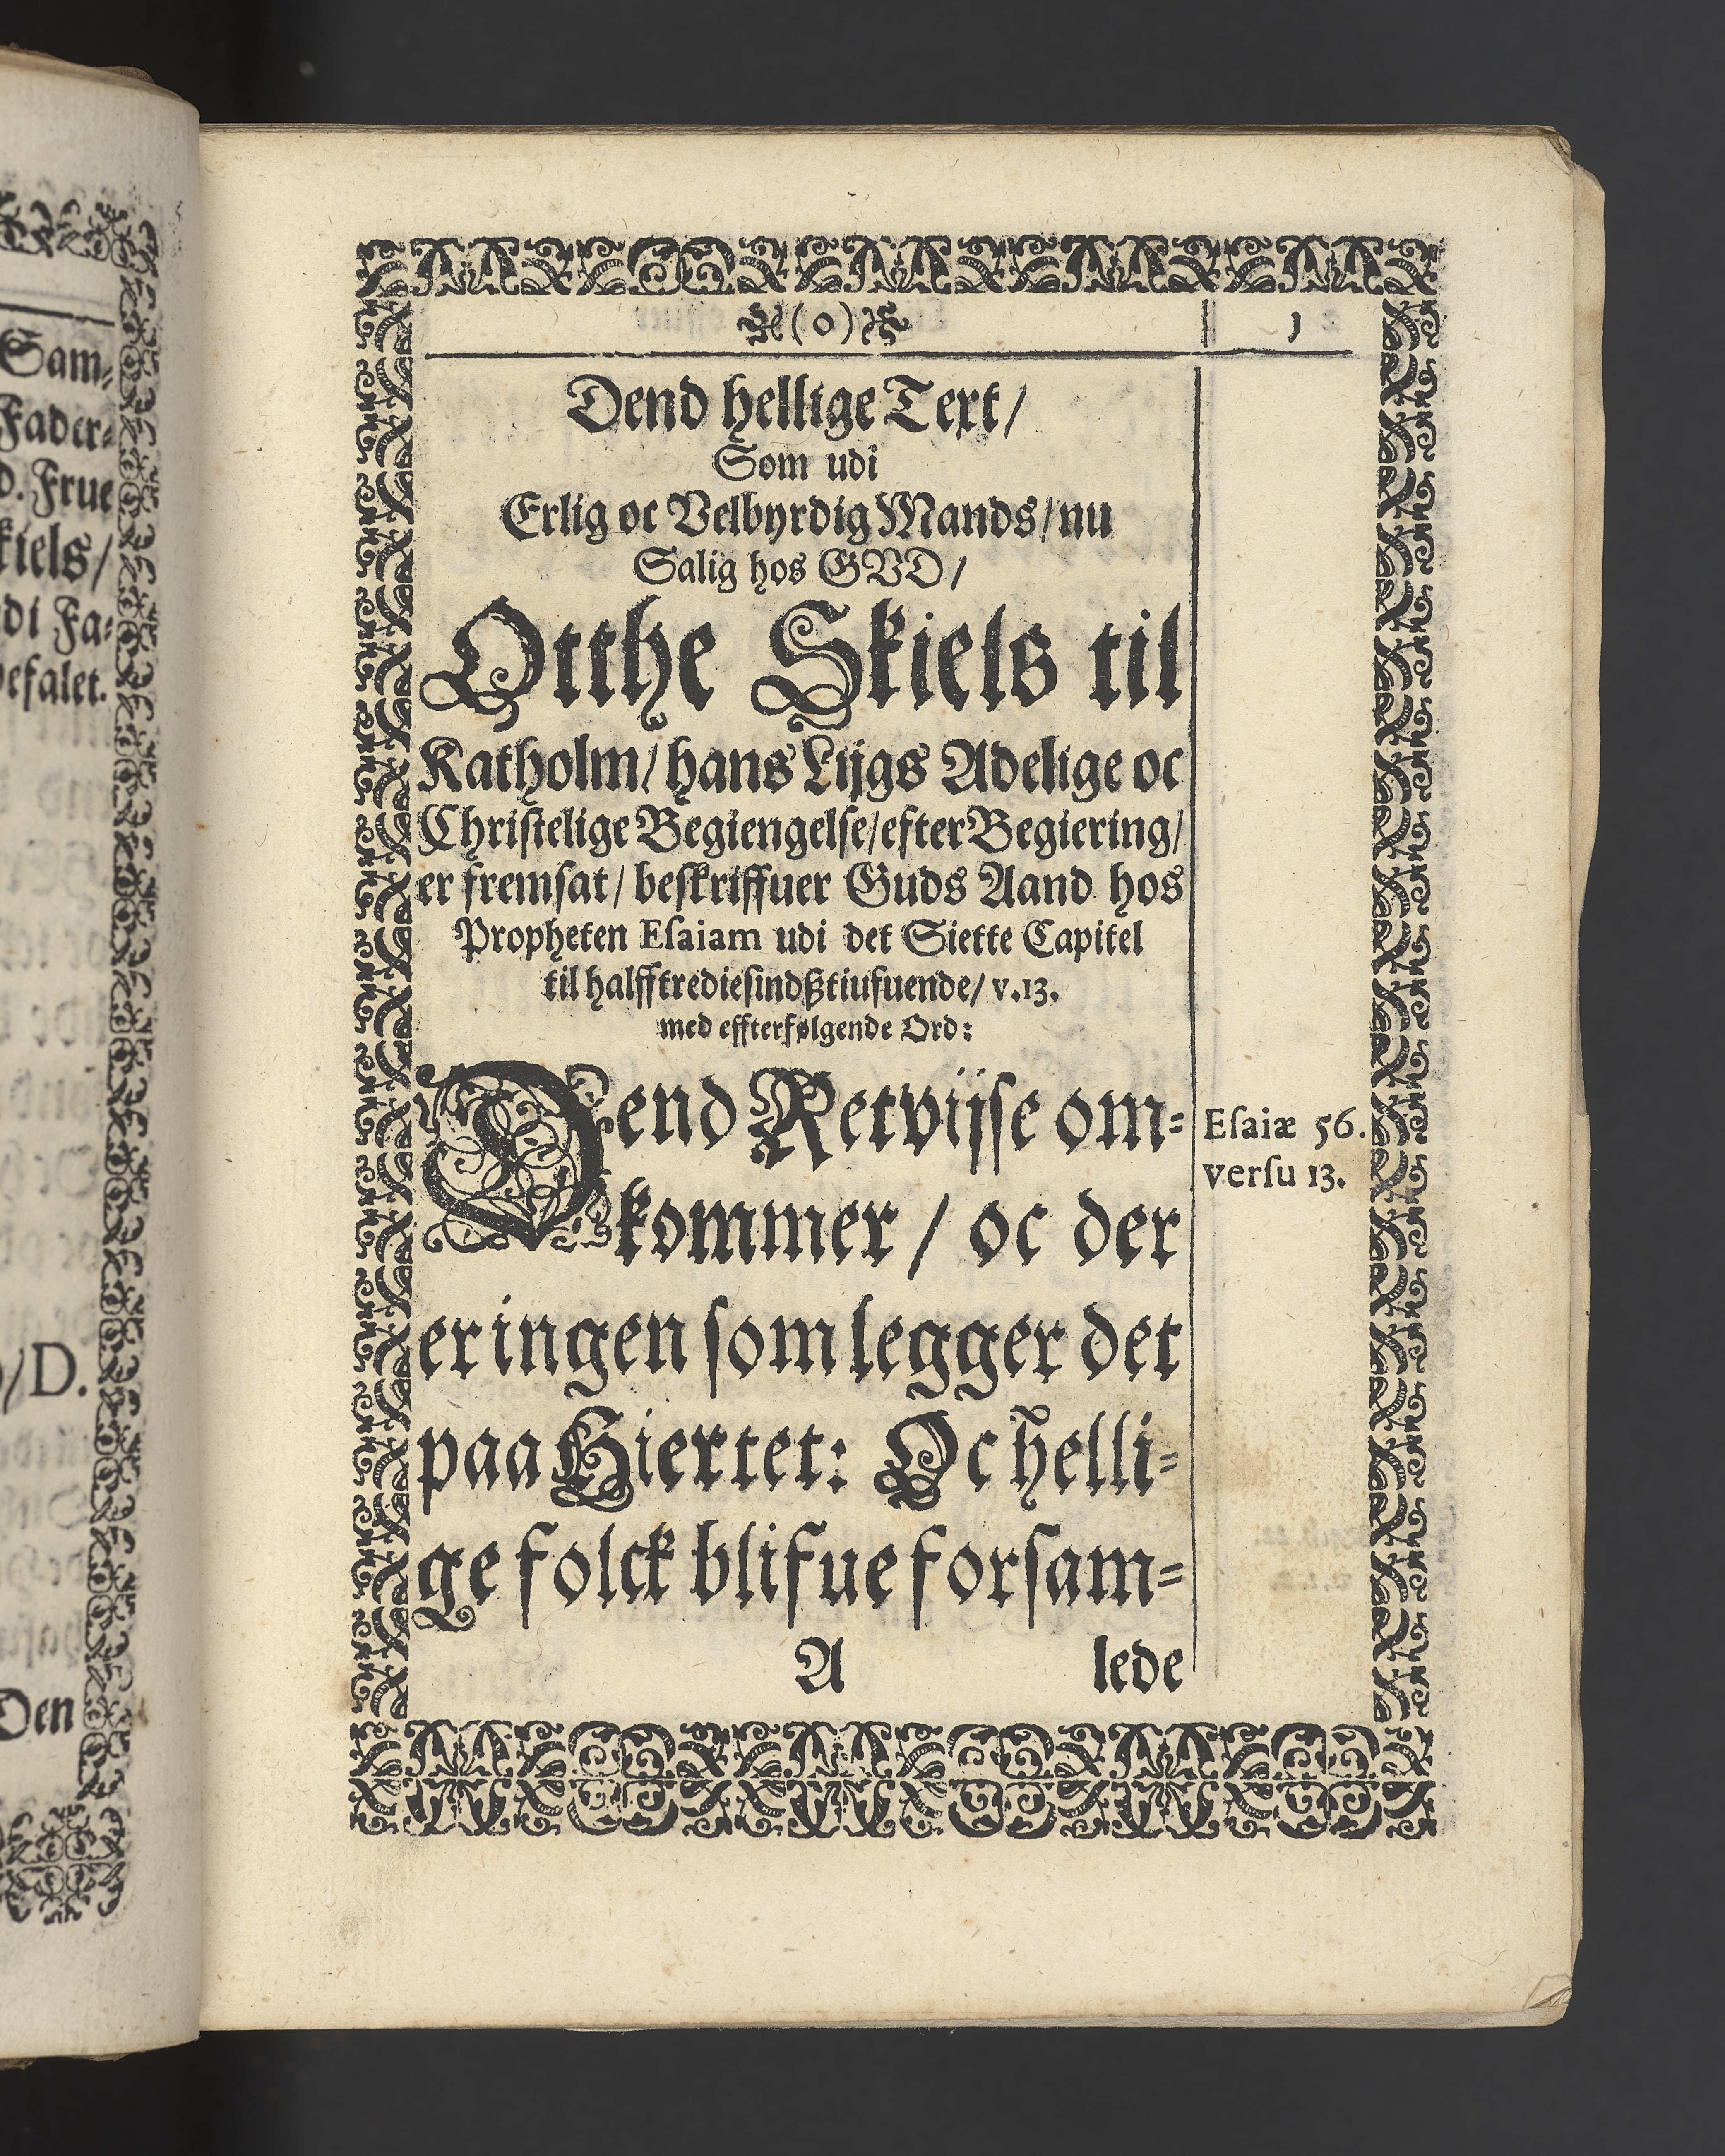 Sam-
Fader-
D. Frue
kiels/
di Fa-
befalet.
/D.
Den
(o)
1
Dend hellige Text/
Som udi
Erlig oc Velbyrdig Mands/nu
Salig hos GVD/
Otthe Skiels til
Katholm/ hans Lijgs Adelige oc
Christelige Begiengelse/efter Begiering/
er fremsat/ beskriffuer Guds Aand hos
Propheten Esaiam udi det Siette Capitel
til halfftrediesindßtiufuende/ v.13.
med effterfølgende Ord:
Dend Retvijse om-
kommer/ oc der
er ingen som legger det
paa Hiertet: Oc helli-
ge folck blifue forsam-
A lede
Esaiæ 56.
versu 13.